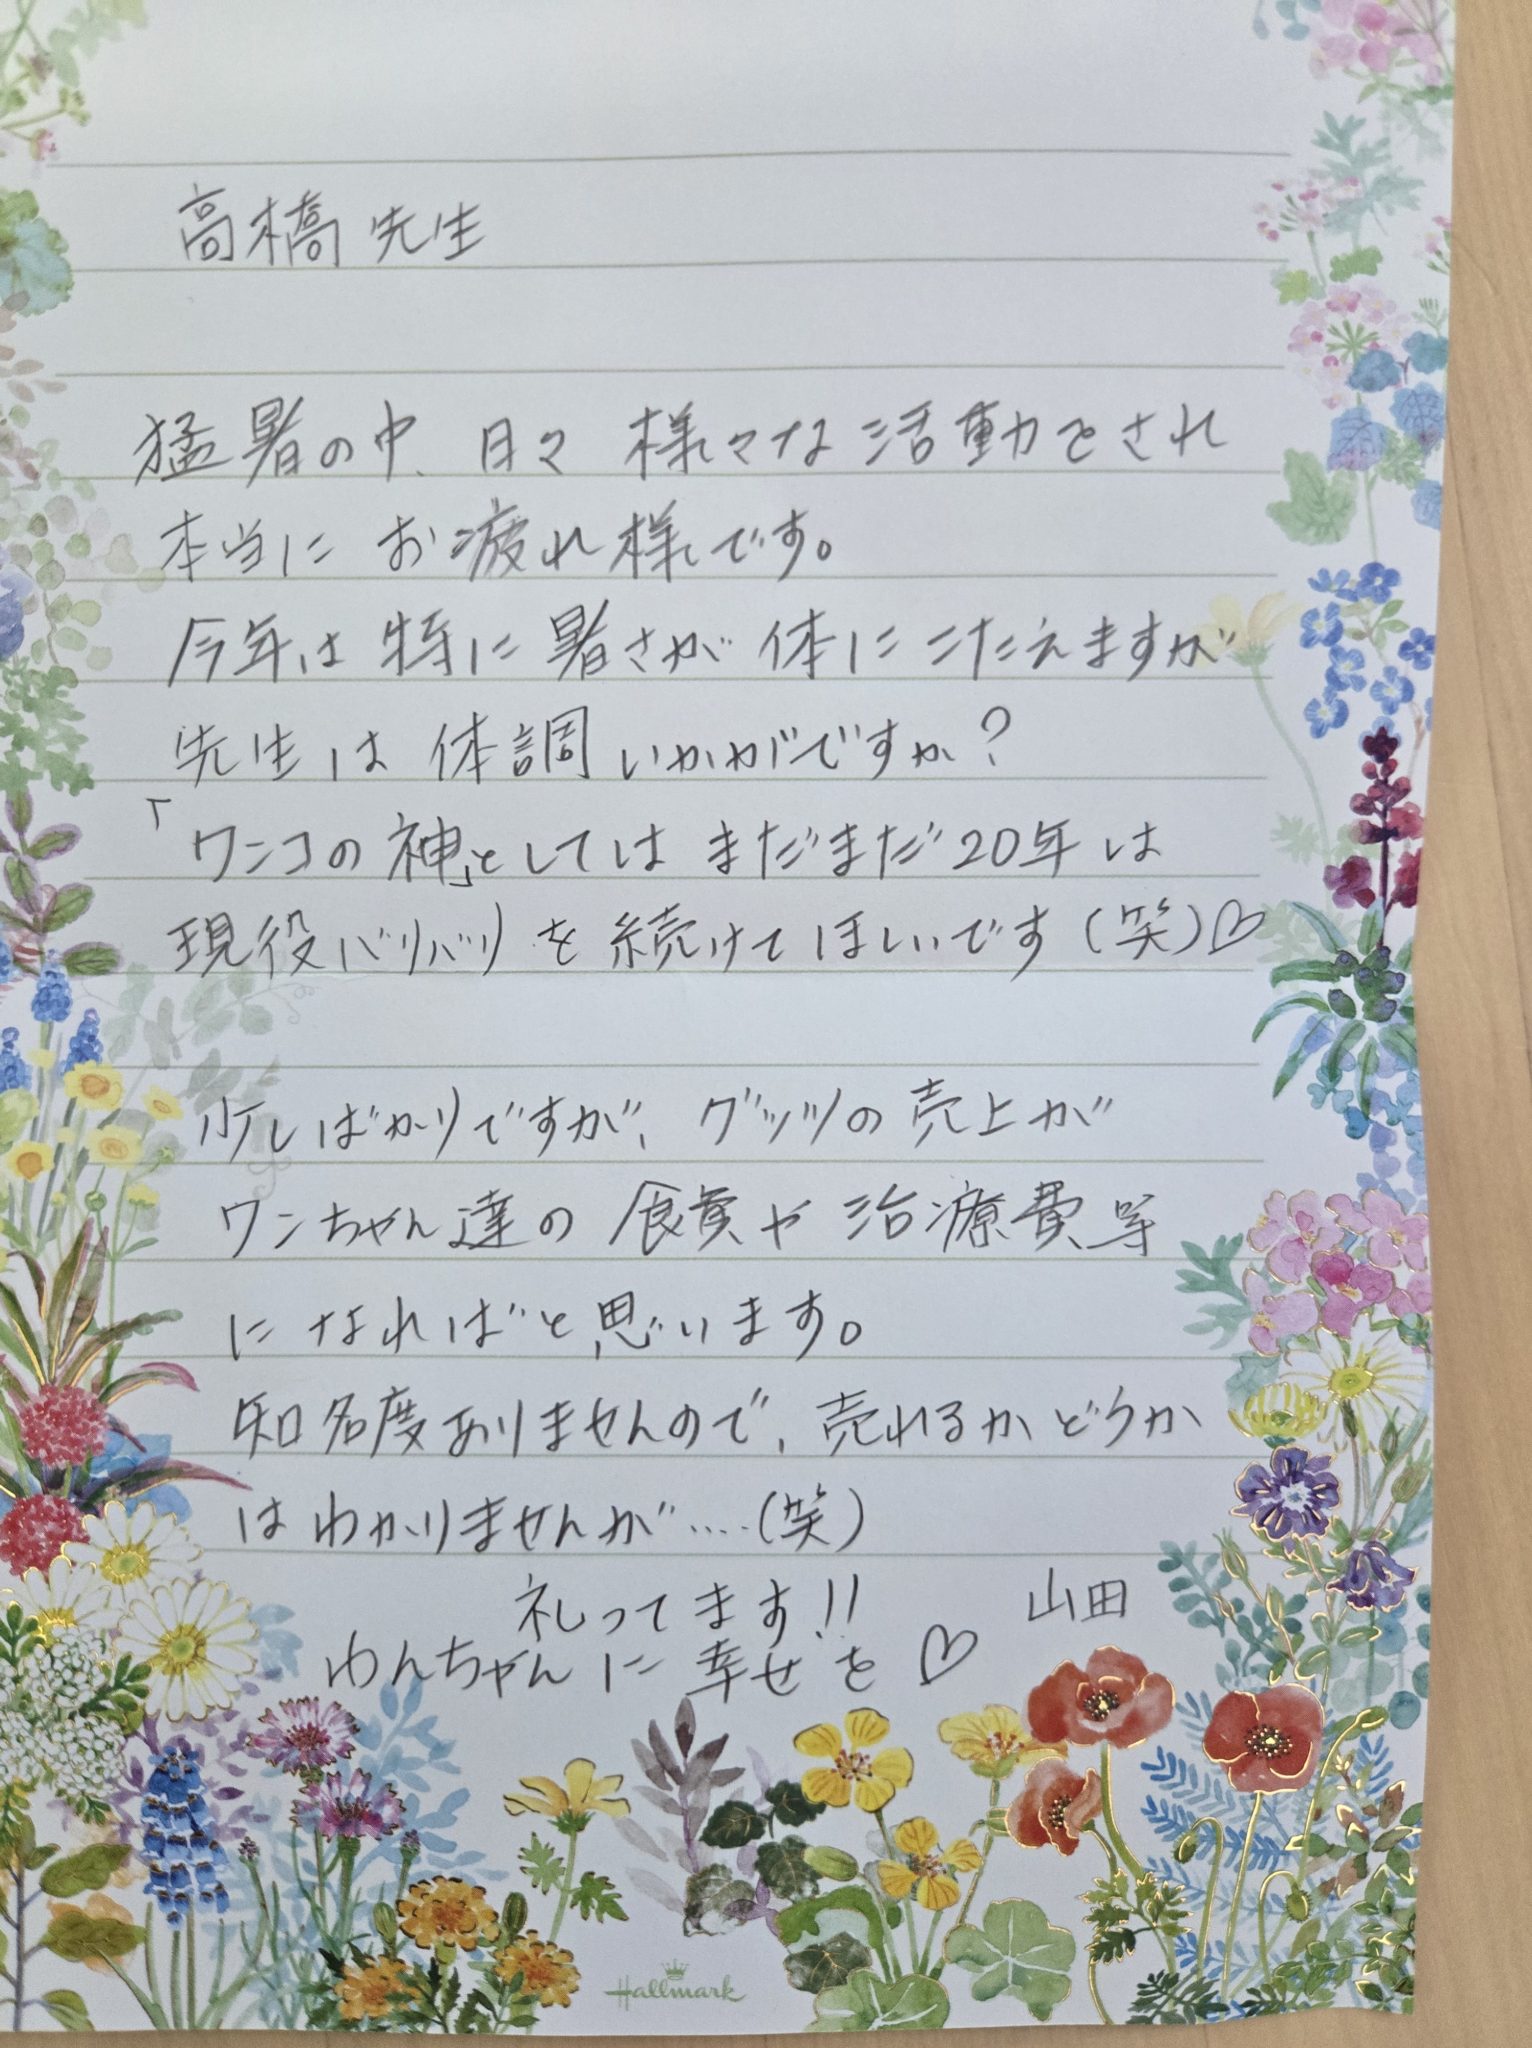 高橋先生
猛暑の中、日々様々な活動をされ
本当にお疲れ様です。
今年は特に暑さが体にこたえますが
先生は体調いかがですか?
「ワンコの神」としてはまだまだ20年は
現役バリバリを続けてほしいです(笑)♡
少しばかりですが、グッツの売上が
ワンちゃん達の食費や治療費等
になればと思います。
知名度ありませんので、売れるかどうか
はわかりませんが....(笑)
祈ってます!! 山田
わんちゃんに幸せを♡
Hallmark